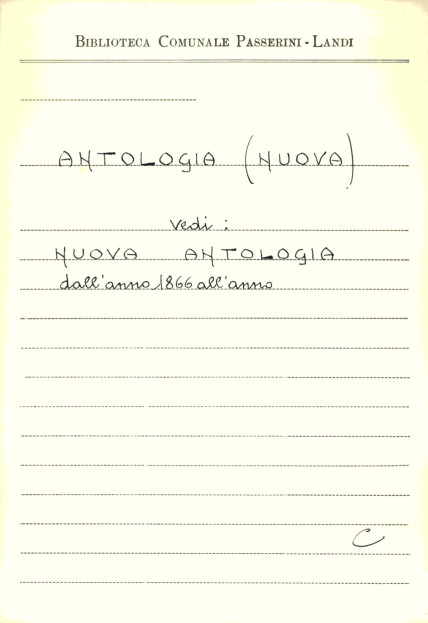 BIBLIOTECA COMUNALE PASSERINI - LANDI
ANTOLOGIA (NUOVA)
vedi :
NUOVA ANTOLOGIA
dall'anno 1866 all'anno
C